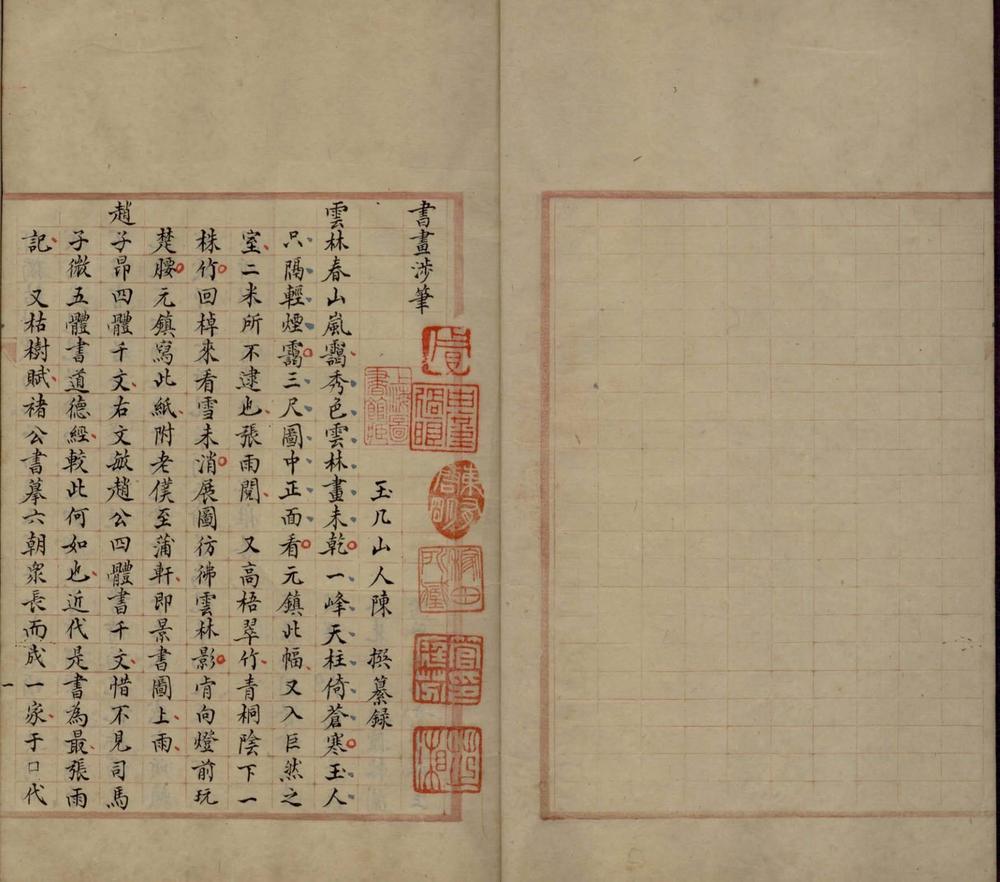 書畫涉筆
玉几山人陳 撰纂録
雲林春山嵐靄秀色雲林畫未乾一峰天柱倚蒼寒玉人
只隔輕煙靄三尺圖中正面看元鎮此幅又入巨然之
室二米所不逮也張雨閱 又高梧翠竹青桐陰下一
株竹回棹來看雪未消展圖彷彿雲林影肯向燈前玩
楚腰元鎮寫此紙附老僕至蒲軒即景書圖上雨
趙子昂四體千文右文敏趙公四體書千文惜不見司馬
子微五體書道德經較此何如也近代是書為最張雨
記 又枯樹賦褚公書摹六朝衆長而成一家于口代
一
上海圖書館藏